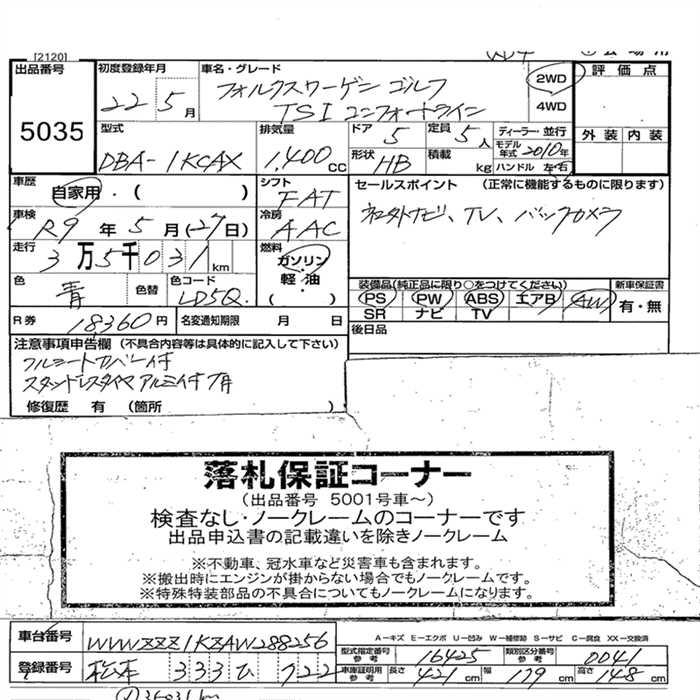 [2120]
出品番号 初度登録年月 車名・グレード 評価点
5035 22年5月 フォルクスワーゲン ゴルフ
TSI コンフォートライン
2WD
4WD
外装 内装
型式 排気量 ドア 定員 ディーラー・並行
DBA-1KCAX 1,400cc 5 5人 モデル年式 2010年
形状 HB 積載 kg ハンドル 左・右
車歴 自家用・( ) シフト FAT セールスポイント (正常に機能するものに限ります)
車検 R9年5月(27日) 冷房 AAC 社外ナビ、TV、バックカメラ
走行 3万5千031km 燃料 ガソリン・軽油・( )
色 青 色替 色コード LD5Q
装備品(純正品に限り○をつけてください) 新車保証書
PS PW ABS エアB AW 有・無
SR ナビ TV
R券 18360円 名変通知期限 月 日 後日品
注意事項申告欄 (不具合内容等は具体的に記入して下さい)
フルシートカバー付
スタッドレスタイヤ アルミ付
修復歴 有 (箇所 )
落札保証コーナー
(出品番号 5001号車~)
検査なし・ノークレームのコーナーです
出品申込書の記載違いを除きノークレーム
※不動車、冠水車など災害車も含まれます。
※搬出時にエンジンが掛からない場合でもノークレームです。
※特殊特装部品の不具合についてもノークレームになります。
A-キズ E-エクボ U-凹み W-補修跡 S-サビ C-腐食 XX-交換済
車台番号 WVWZZZ1KZAW288256 型式指定番号 参考 16425 類別区分番号 参考 0041
登録番号 松本 333 ひ 722 車庫証明用 参考 長さ 421cm 幅 179cm 高さ 148cm